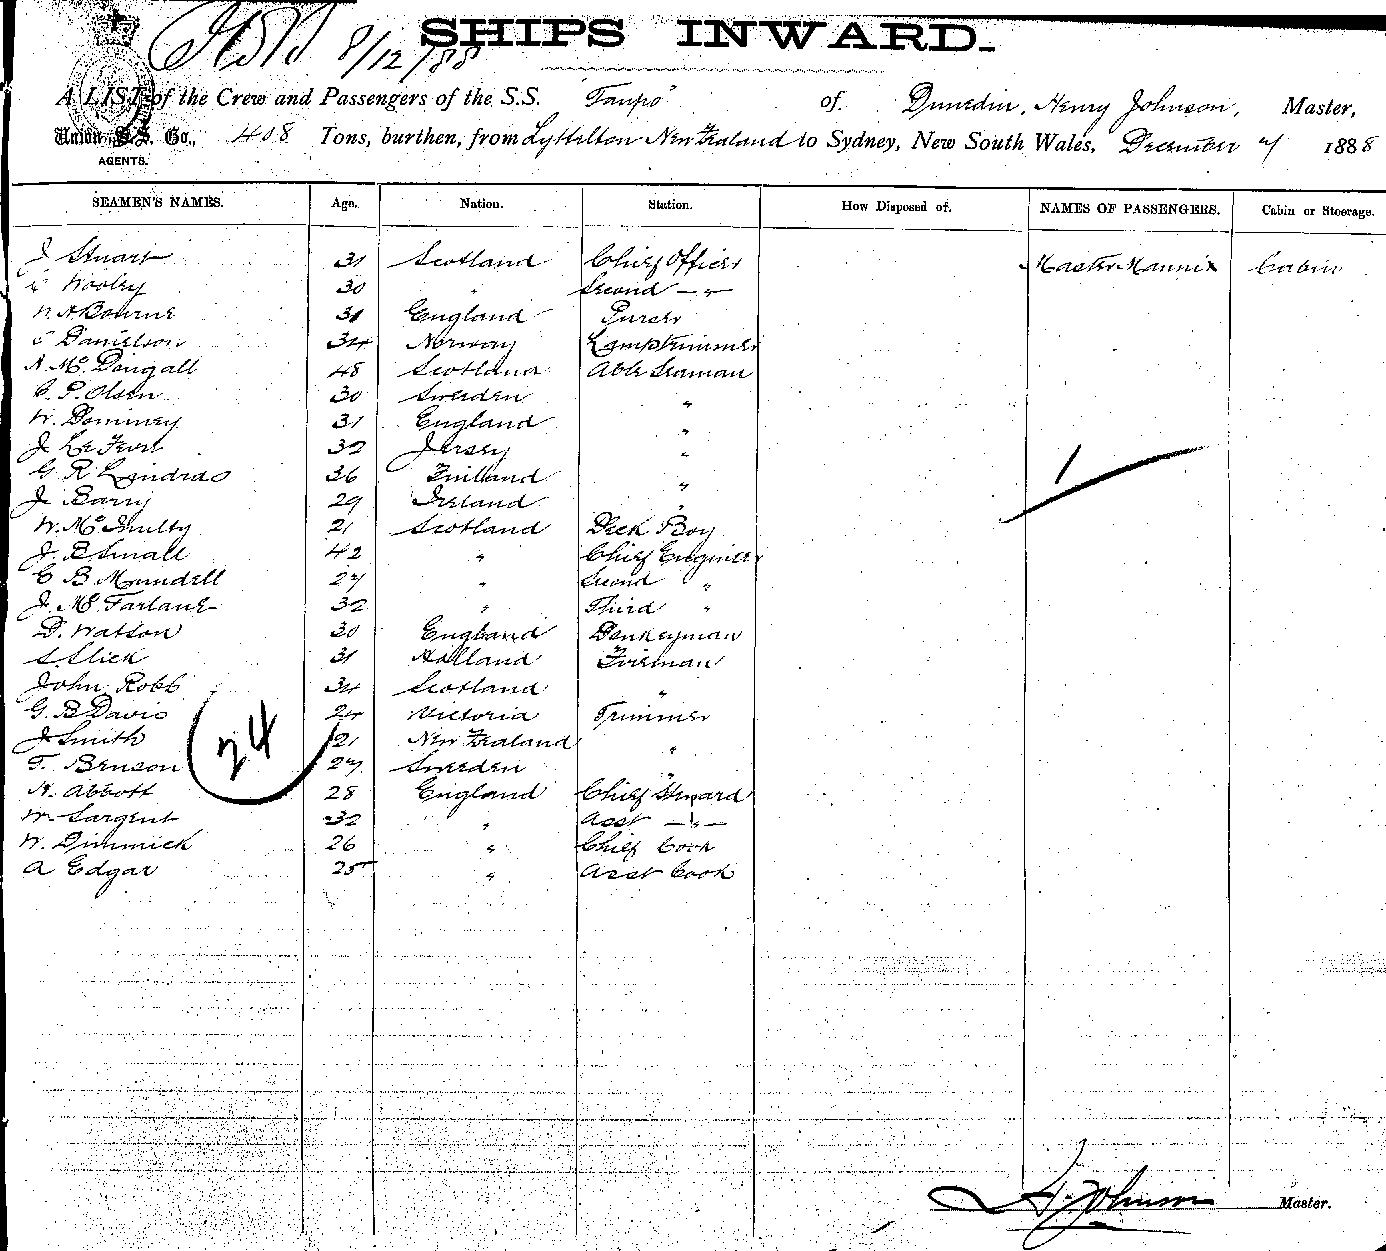 8/12/88
SHIPS INWARD.
A LIST of the Crew and Passengers of the S.S. "Taupo" of Dunedin, Henry Johnson, Master,
Union S.S. Co., 408 Tons, burthen, from Lyttelton New Zealand to Sydney, New South Wales, December 7 1888
AGENTS.
SEAMEN'S NAMES. Age. Nation. Station. How Disposed of. NAMES OF PASSENGERS. Cabin or Steerage.
J Stuart 31 Scotland Chief Officer Master Mannix Cabin
Wooley 30 " Second — " —
Bourne 31 England Purser
Danielson 34 Norway Lamptrimmer
McDougall 48 Scotland Able Seaman
C. P. Olsen 30 Sweden "
W. Domincy 31 England "
J Le 32 Jersey "
G R 36 Finland "
J Barry 29 Ireland "
W. McNulty 21 Scotland Deck Boy
J. B Small 42 " Chief Engineer
C B Mundell 27 " Second "
J. McFarlane 32 " Third "
D. Watson 30 England Donkeyman
S. Slick 31 Holland Fireman
John Robb 34 Scotland "
G. B Davis 24 Victoria Trimmer
J Smith 21 New Zealand "
T. Benson 27 Sweden "
Abbott 28 England Chief Steward
W. Sargent 32 " Asst — " —
W. Dimmick 26 " Chief Cook
A Edgar 25 " Asst Cook
24
1
H. Johnson Master.